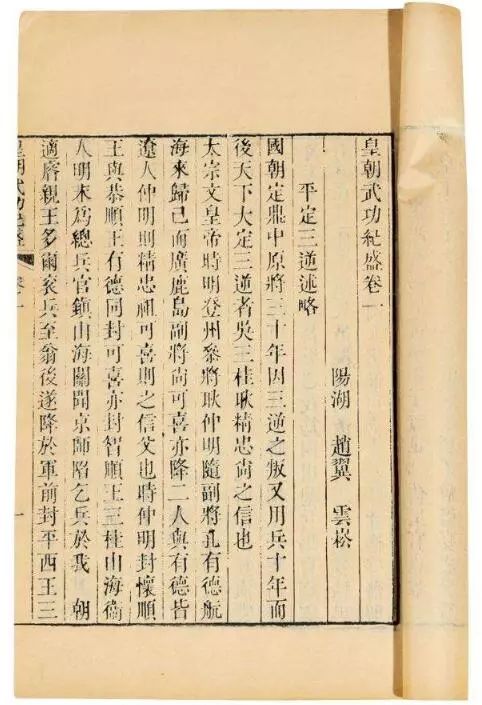 皇朝武功紀盛卷一
陽湖 趙翼 雲崧
平定三逆述略
國朝定鼎中原將三十年因三逆之叛又用兵十年而
後天下大定三逆者吳三桂耿精忠尙之信也
太宗文皇帝時明登州叅將耿仲明隨副將孔有德航
海來歸已而廣鹿島副將尙可喜亦降二人與有德皆
遼人仲明則精忠祖可喜則之信父也時仲明封懷順
王與恭順王有德同封可喜亦封智順王三桂山海衞
人明末爲總兵官鎮山海關聞京師陷乞兵於我 朝
適睿親王多爾袞兵至翁後遂降於軍前封平西王三
皇朝武功紀盛 卷一 一